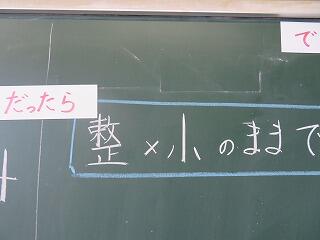 で
だったら
整×小のままで